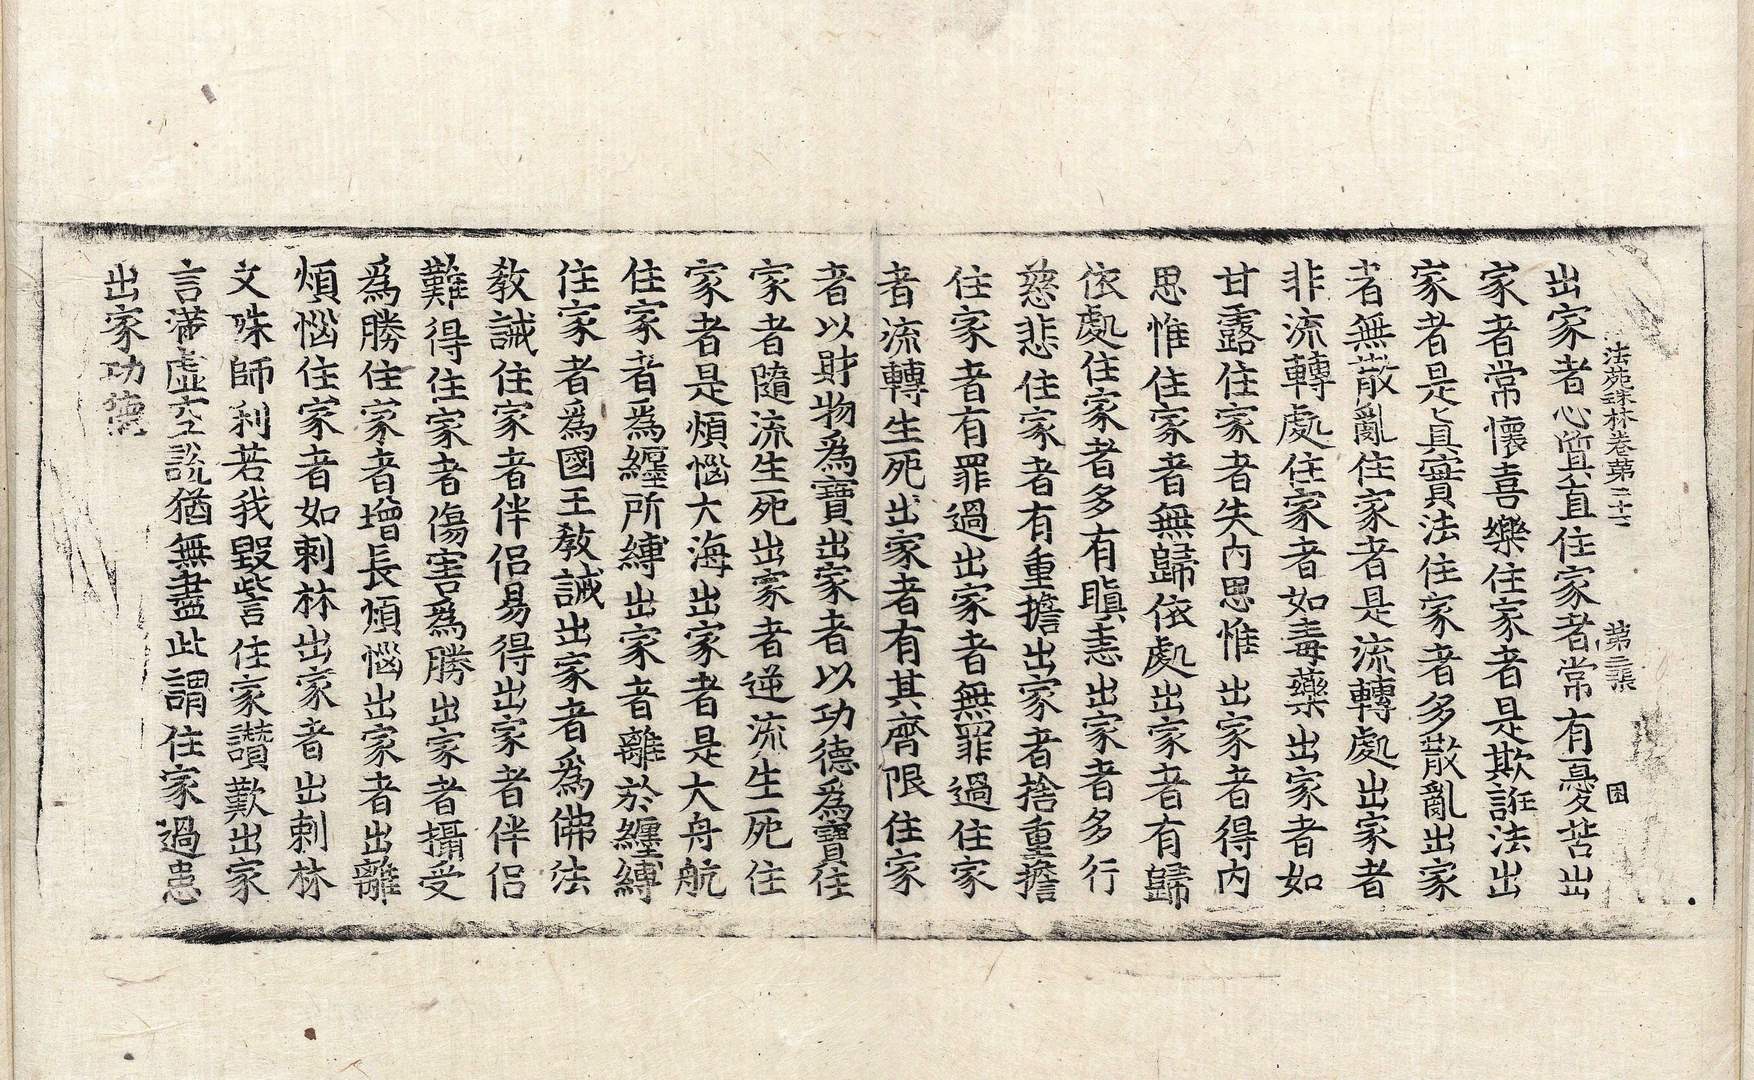 法苑珠林卷第二十二 第二張 困
出家者心質直住家者常有憂苦出
家者常懷喜樂住家者是欺誑法出
家者是真實法住家者多散亂出家
者無散亂住家者是流轉處出家者
非流轉處住家者如毒藥出家者如
甘露住家者失內思惟出家者得內
思惟住家者無歸依處出家者有歸
依處住家者多有瞋恚出家者多行
慈悲住家者有重擔出家者捨重擔
住家者有罪過出家者無罪過住家
者流轉生死出家者有其齊限住家
者以財物為寶出家者以功德為寶住
家者隨流生死出家者逆流生死住
家者是煩惱大海出家者是大舟航
住家者為纏所縛出家者離於纏縛
住家者為國王教誡出家者為佛法
教誡住家者伴侶易得出家者伴侶
難得住家者傷害為勝出家者攝受
為勝住家者增長煩惱出家者出離
煩惱住家者如刺林出家者出刺林
文殊師利若我毀訾住家讚歎出家
言滿虛空說猶無盡此謂住家過患
出家功德